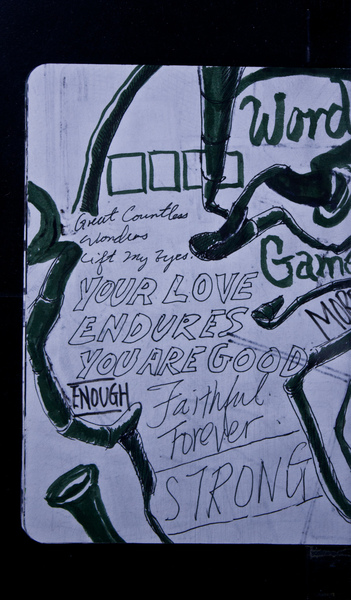 Word
Great Countless
Wonders
Lift My Eyes.
Game
YOUR LOVE
ENDURES
MORE
YOU ARE GOOD
ENOUGH
Faithful
Forever
STRONG